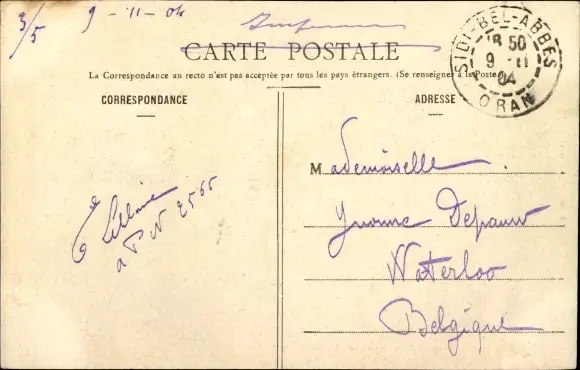 3/5
9 - 11 - 04
CARTE POSTALE
La Correspondance au recto n'est pas acceptée par tous les pays étrangers. (Se renseigner à la Poste
SIDI-BEL-ABBÈS
18 50
9 -11
04
ORAN
CORRESPONDANCE
ADRESSE
Mademoiselle
Yvonne Depauw
Waterloo
Belgique
à P N 2565